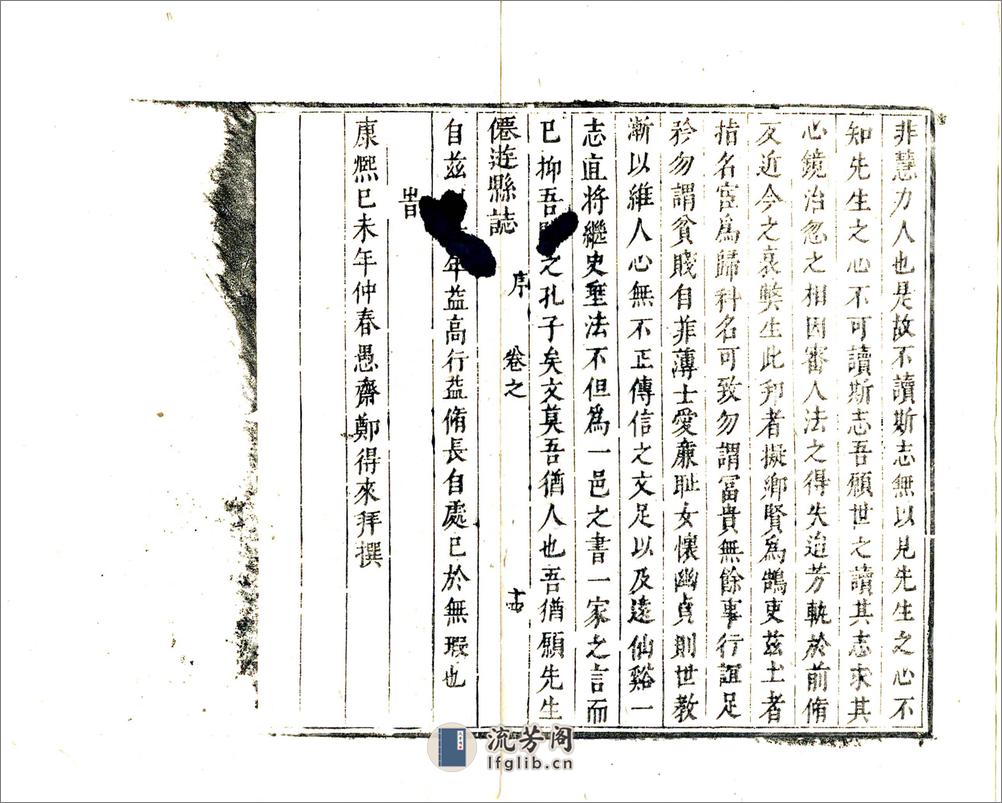 非慧力人也是故不讀斯志無以見先生之心不
知先生之心不可讀斯志吾願世之讀其志求其
心鏡治忽之相因審人法之得失追芳軌於前脩
友近今之哀獘生此邦者擬鄉賢為鵠吏茲土者
指名宦為歸科名可致勿謂冨貴無餘事行誼足
矜勿謂貧賤自菲薄士愛亷耻女懷幽貞則世教
漸以維人心無不正傳信之文足以及遠仙谿一
志直将繼史垂法不但為一邑之書一家之言而
已抑吾 之孔子矣文莫吾猶人也吾猶願先生
僊遊縣誌 序 卷之 十四
自兹 年益高行益脩長自處已於無瑕也
旹
康熈已未年仲春愚齋鄭得來拜撰
流芳阁
lfglib.cn